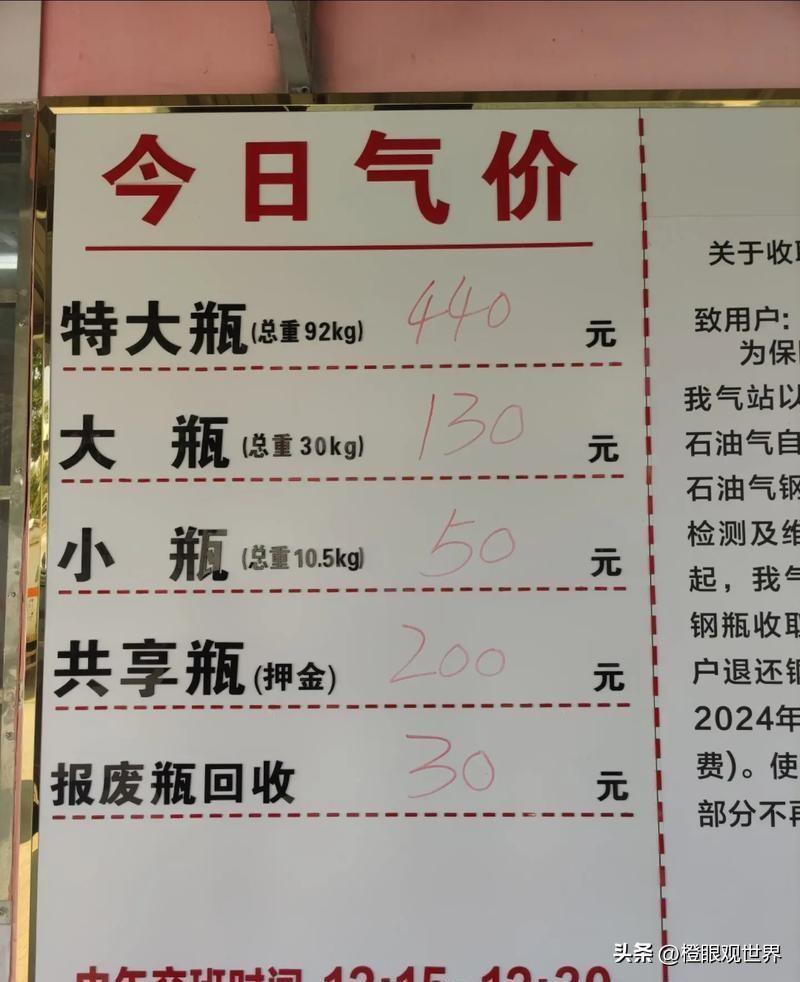 今日气价
特大瓶(总重92kg) 440 元
大瓶(总重30kg) 130 元
小瓶(总重10.5kg) 50 元
共享瓶(押金) 200 元
报废瓶回收 30 元
关于收取
致用户:
为保
我气站以
石油气自
石油气钢
检测及维
起，我气
钢瓶收取
户退还钢
2024年
费)。使
部分不再
中午交班时间 12:15 12:30
头条 @橙眼观世界